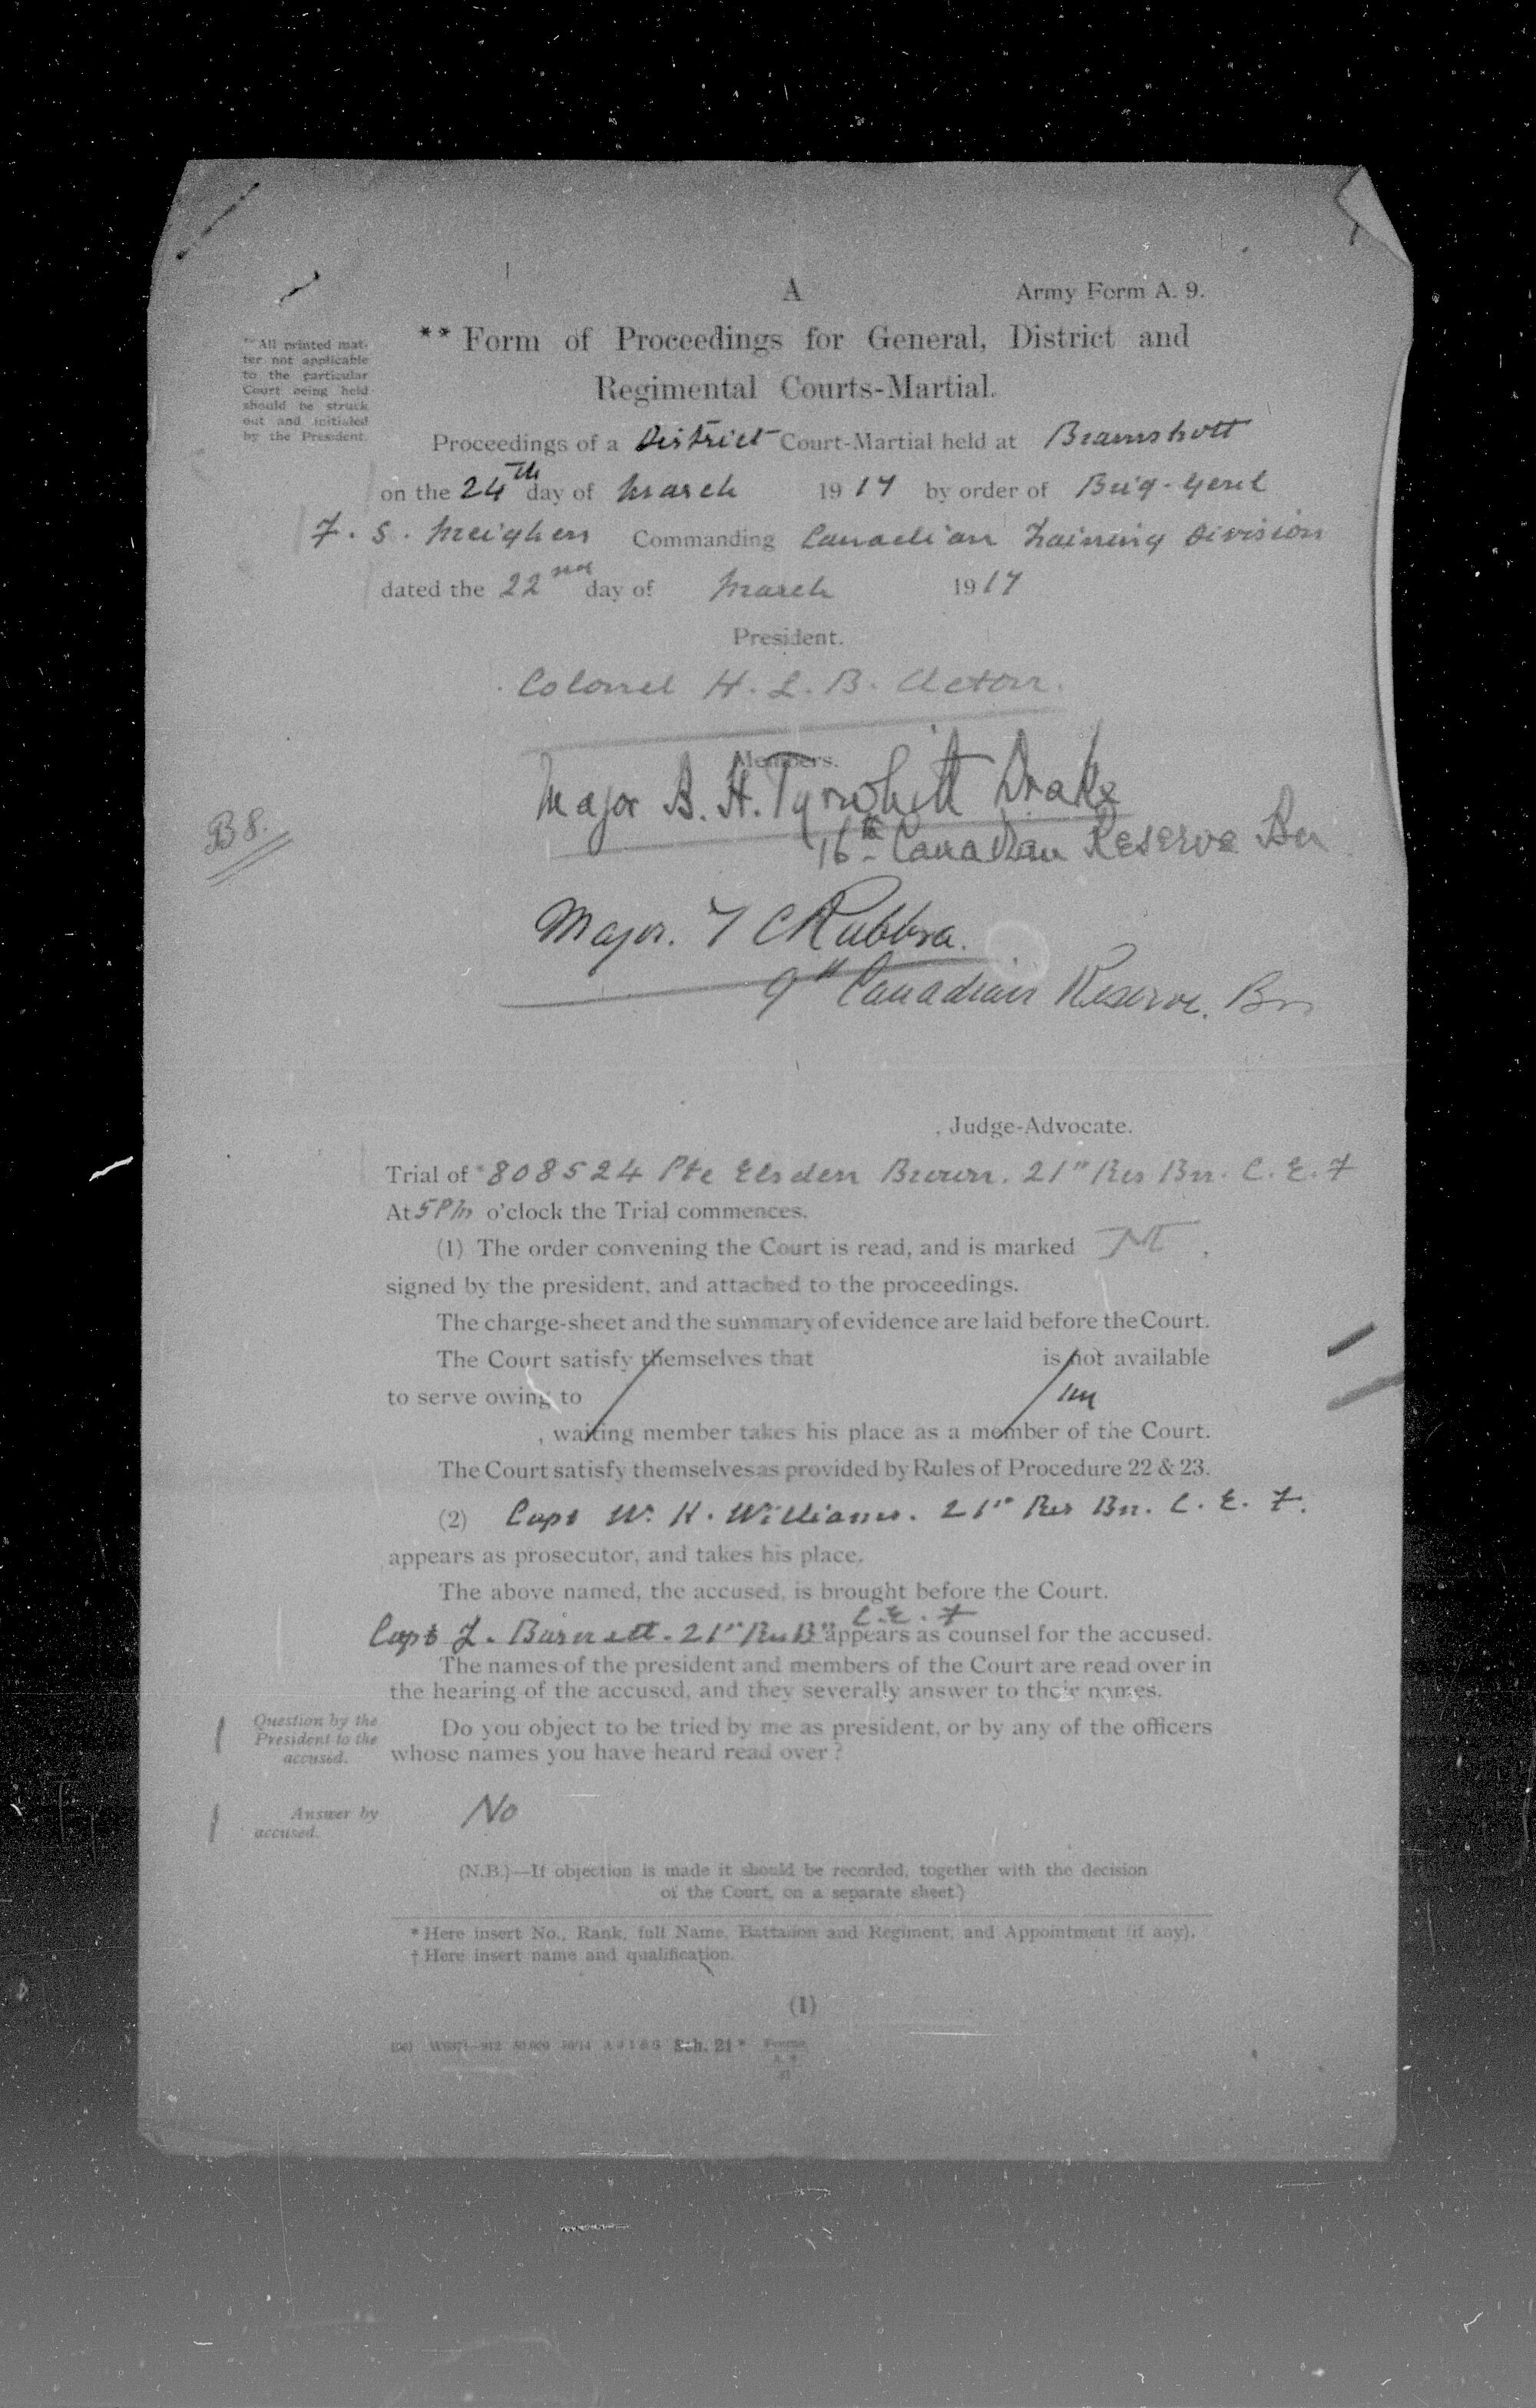 A
Army Form A. 9.
** Form of Proceedings for General, District and
Regimental Courts-Martial.
**All printed mat-
ter not applicable
to the particular
Court being held
should be struck
out and initialed
by the President.
Proceedings of a District Court-Martial held at Bramshott
on the 24th day of March 1917 by order of Brig-Genl
F. S. Meighen Commanding Canadian Training Division
dated the 22nd day of March 1917
President.
Colonel H. L. B. Acton.
Members.
Major B. H. Tyrwhitt Drake
16th Canadian Reserve Bn
B8.
Major. F C Rubbra.
9th Canadian Reserve. Bn
, Judge-Advocate.
Trial of *808524 Pte Elsden Brown. 21st Res Bn. C. E. F
At 5 PM o'clock the Trial commences.
(1) The order convening the Court is read, and is marked
signed by the president, and attached to the proceedings.
The charge-sheet and the summary of evidence are laid before the Court.
The Court satisfy themselves that is not available
to serve owing to
, waiting member takes his place as a member of the Court.
The Court satisfy themselves as provided by Rules of Procedure 22 & 23.
(2) Capt W. H. Williams. 21st Res Bn. C. E. F.
appears as prosecutor, and takes his place.
The above named, the accused, is brought before the Court.
C. E. F
Capt L. Barnett. 21st Res Bn appears as counsel for the accused.
The names of the president and members of the Court are read over in
the hearing of the accused, and they severally answer to their names.
Question by the
President to the
accused.
Do you object to be tried by me as president, or by any of the officers
whose names you have heard read over ?
Answer by
accused.
No
(N.B.)—If objection is made it should be recorded, together with the decision
of the Court, on a separate sheet.)
* Here insert No., Rank, full Name, Battalion and Regiment, and Appointment (if any).
† Here insert name and qualification.
(1)
Sch. 21*